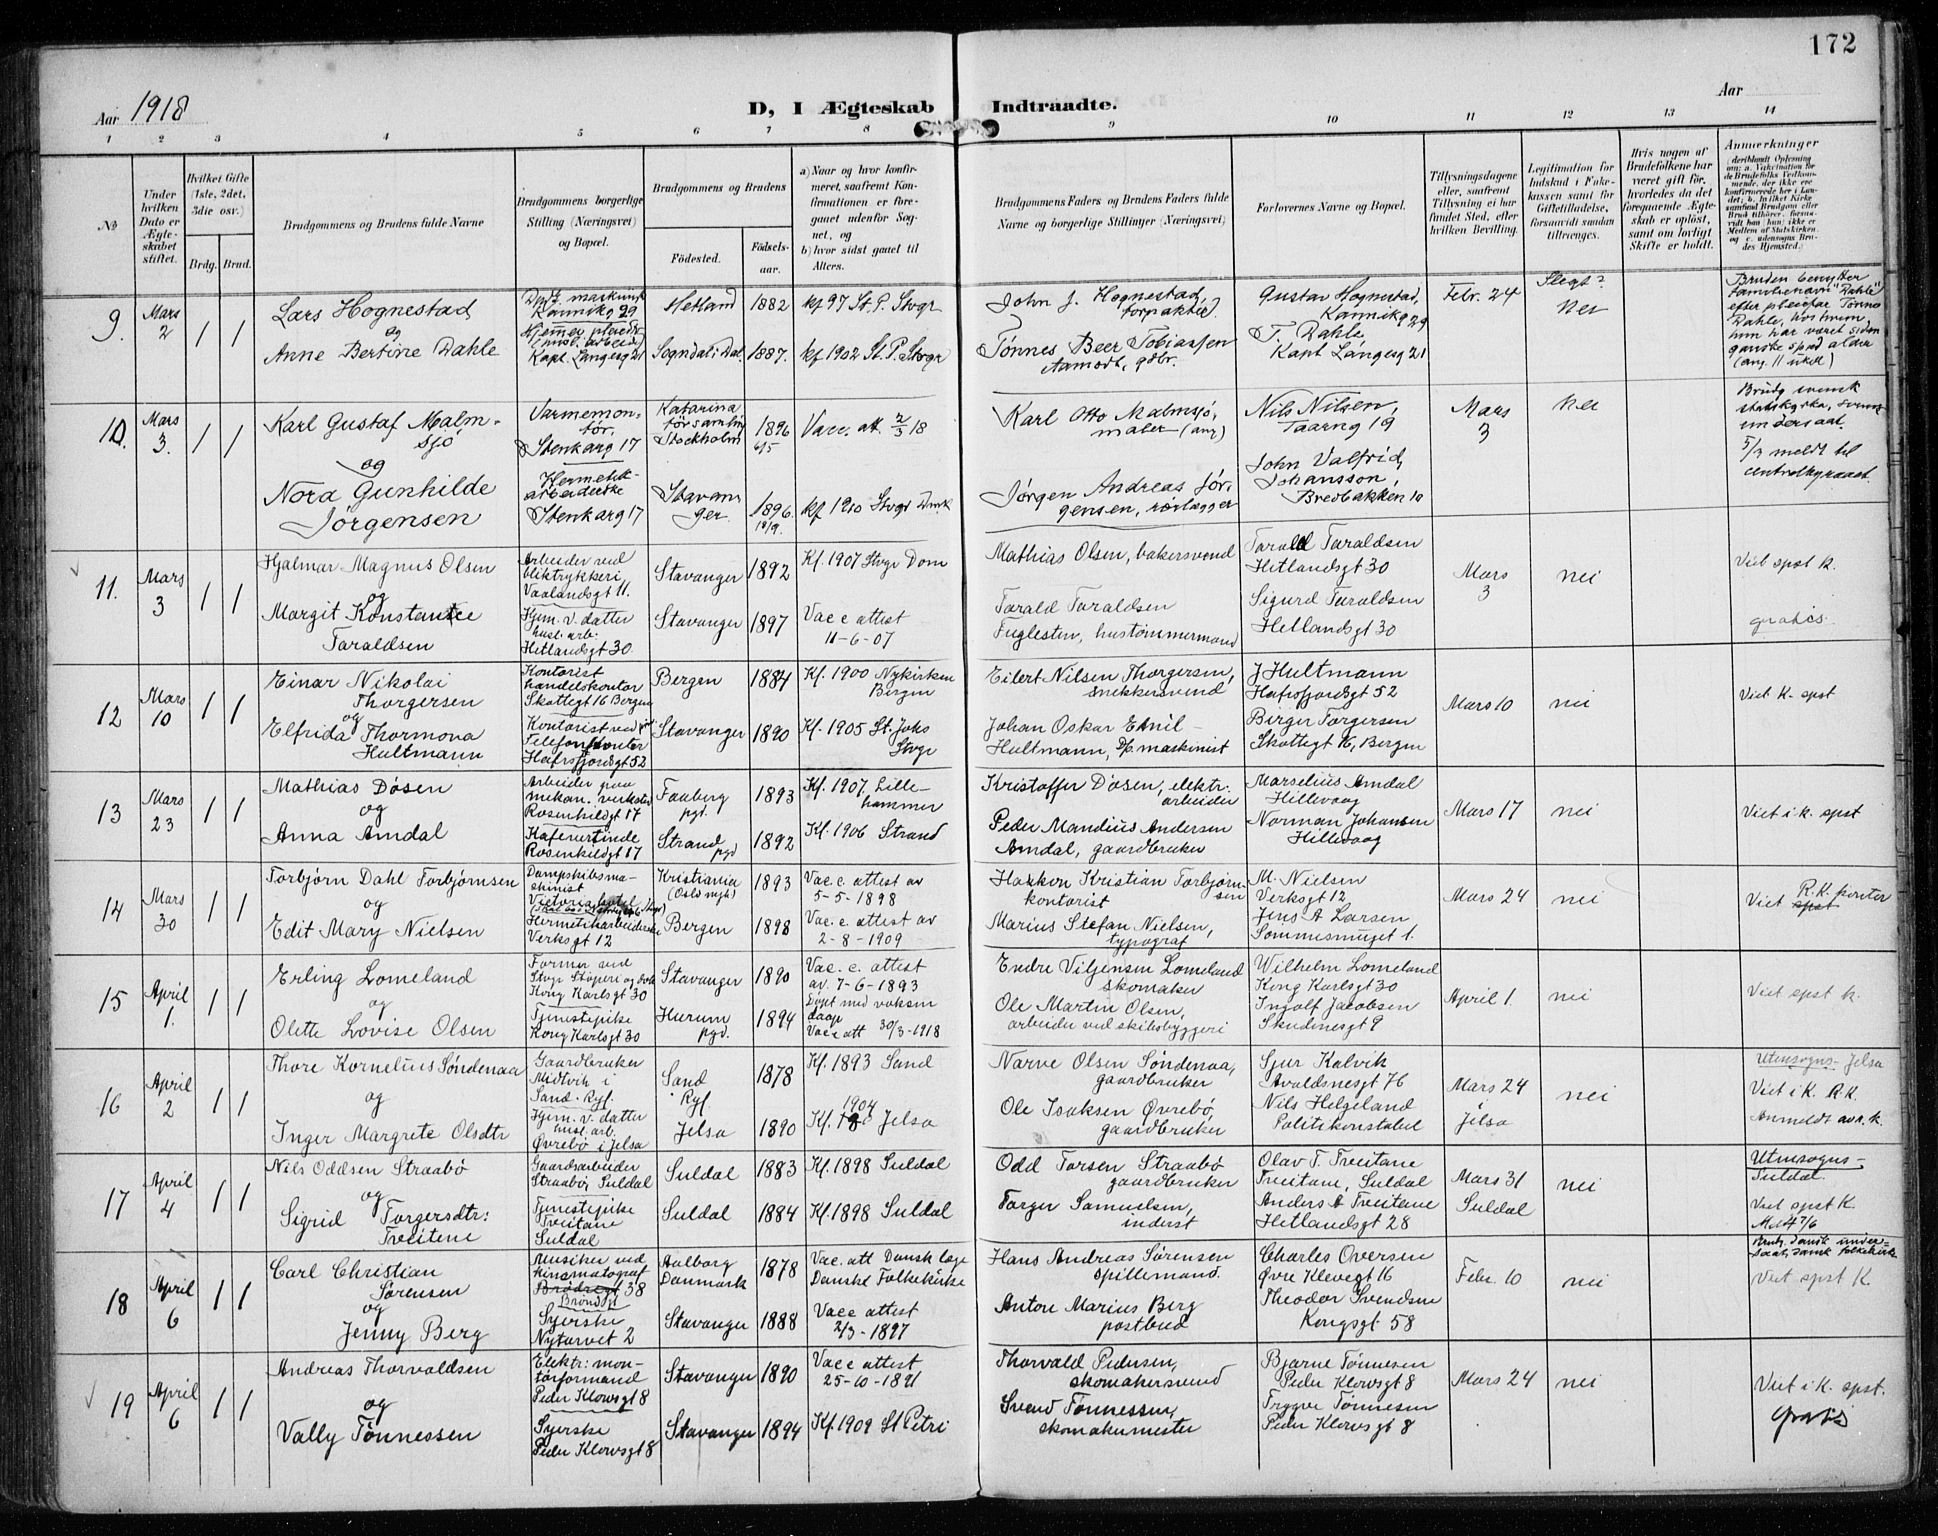 172
Aar 1918
D, I Ægteskab Indtraadte.
Aar
1 2 3 4 5 6 7 8 9 10 11 12 13 14
No
Under hvilken Dato er Ægteskabet stiftet.
Hvilket Gifte (1ste, 2det, 3die osv.)
Brdg. Brud.
Brudgommens og Brudens fulde Navne
Brudgommens borgerlige Stilling (Næringsvei) og Bopæl.
Brudgommens og Brudens
Fødested.
Fødselsaar.
a) Naar og hvor konfirmeret, saafremt Konfirmationen er foregaaet udenfor Sognet, og
b) hvor sidst gaaet til Alters.
Brudgommens Faders og Brudens Faders fulde Navne og borgerlige Stillinger (Næringsvei)
Forlovernes Navne og Bopæl.
Tillysningsdagene eller, saafremt Tillysning ei har fundet Sted, efter hvilken Bevilling.
Legitimation for Indskud i Enkekassen samt for Giftetilladelse, forsaavidt saadan tiltrænges.
Hvis nogen af Brudefolkene har været gift før, hvorledes da det foregaaende Ægteskab er opløst, samt om lovligt Skifte er holdt.
Anmerkninger
9. Mars 2 1 1
Lars Hognestad
og
Anne Bertine Dahle
Kannikg 29
Kapt Langesg 21
Hetland 1882 kf 97 St. P. Stvgr
Sogndal i Dal. 1887. kf 1902 St. P. Stvgr
John J. Hognestad,
Tønnes Beer Tobiassen
Aamodt, gdbr.
Gustav Hognestad,
Kannikg 29
T. Dahle,
Kapt Langesg 21
Febr. 24
Slegt?
Nei
Bruden benytter
familienavn "Dahle"
efter pleiefar Tønnes
Dahle, hos hvem
hun har været siden
ganske spæd alder
10. Mars 3. 1 1
Karl Gustaf Malmsjö
og
Nora Gunhilde
Jørgensen
Varmemontør,
Stenkarg 17
Hermetikarbeiderske
Stenkarg 17
Katarina
församling
Stockholm 1896 6/5
Stavanger 1896. 18/9
Vacc. att. 2/3 18
kf 1910 Stvgr Domk
Karl Otto Malmsjö,
maler (ang)
Jørgen Andreas Jørgensen, rørlægger
Nils Nilsen,
Taarng 19
John Valfrid
Johansson,
Bredbakken 10
Mars 3
Nei
Brudg svensk
statskyrka, svensk
undersaat.
5/3 meldt til
centralbyraaet
11. Mars 3 1 1
Hjalmar Magnus Olsen
og
Margit Konstanse
Taraldsen
Arbeider ved
bliktrykkeri
Vaalandsgt 11.
Hjem. v. datter
husl. arb.
Hetlandsgt 30.
Stavanger 1892 Kf. 1907 Stvgr Dom
Stavanger 1897 Vacc attest
11-6-07
Mathias Olsen, bakersvend
Tarald Taraldsen
Fuglesten, hustømmermand
Tarald Taraldsen
Hetlandsgt 30
Sigurd Taraldsen
Hetlandsgt 30
Mars 3
nei
Viet spst K.
gratis.
12 Mars 10 1 1
Einar Nikolai
Thorgersen
og
Elfrida Thormona
Hultmann
Kontorist
handelskontor
Skottegt 16 Bergen
Kontorist ved
Telefonkontor
Hafrsfjordsgt 52
Bergen 1884 Kf. 1900 Nykirken
Bergen
Stavanger 1890 Kf. 1905 St. Johs
Stvgr
Eilert Nilsen Thorgersen,
snekkersvend
Johan Oskar Emil
Hultmann, D/p. maskinist
J Hultmann
Hafrsfjordsgt 52
Birger Torgersen
Skottegt 16, Bergen
Mars 10
nei
Viet K. spst
13 Mars 23 1 1
Mathias Døsen
og
Anna Amdal
Arbeider paa
mekan. verksted
Rosenkildgt 17
Kafevertinde
Rosenkildgt 17
Faaberg
pgd. 1893 Kf. 1907 Lillehammer
Strand
pgd 1892 Kf. 1906 Strand
Kristoffer Døsen, elektr.
arbeider
Peder Mandius Andersen
Amdal, gaardbruker
Marselius Amdal
Hillevaag
Norman Johansen
Hillevaag
Mars 17
nei
Viet i k. spst
14 Mars 30 1 1
Torbjørn Dahl Torbjørnsen
og
Edit Mary Nielsen
Dampskibsmaskinist
Victoria hotel
Hermetikarbeiderske
Verksgt 12
Kristiania
1893 Vac. c. attest av
5-5-1898
Bergen 1898 Vac. c attest av
2-8-1909
Haakon Kristian Torbjørnsen
kontorist
Marius Stefan Nielsen,
typograf
M. Nielsen
Verksgt 12
Jens A Larsen
Mars 24
nei
Viet spst
15 April 1. 1 1
Erling Lomeland
og
Olette Lovise Olsen
Former ved
Stvgr Støperi og dok
Kong Karlsgt 30
Tjenestepike
Kong Karlsgt 30
Stavanger 1890 Vac. c. attest
av. 7-6-1893
Hurum
pgd. 1894 Døpt med voksen
daap
Vacc att 30/3-1918
Endre Viljensen Lomeland
skomaker
Ole Martin Olsen,
arbeider ved skibsbyggeri
Wilhelm Lomeland
Kong Karlsgt 30
Ingolf Jacobsen
Skudenesgt 9
April 1.
nei
Viet spst k.
16 April 2 1 1
Thore Kornelius Søndenaa
og
Inger Margrete Olsdtr
Gaardbruker
Midtvik i
Sand. Ryf.
Hjem. v. datter
husl. arb.
Øvrebø i Jelsa
Sand
Ryf 1878 Kf. 1893 Sand
Jelsa 1890 Kf. 1904 Jelsa
Narve Olsen Søndenaa,
gaardbruker
Ole Isaksen Øvrebø,
gaardbruker
Sjur Kalvik
Avaldsnesgt 76
Nils Helgeland
Politikonstabel
Mars 24
i
Jelsa
nei
Utensogns- Jelsa
Viet i K. R.K.
Anmeldt av R.K.
17 April 4 1 1
Nils Oddsen Straabø
og
Sigrid Torgersdtr:
Treitene
Gaardsarbeider
Straabø, Suldal
Tjenestepike
Treitane
Suldal
Suldal 1883 Kf. 1898 Suldal
Suldal 1884 Kf. 1898 Suldal
Odd Torsen Straabø
gaardbruker
Torger Samuelsen,
inderst
Olav T. Treitane
Treitane, Suldal
Anders A Treitane
Hetlandsgt 28
Mars 31
Suldal
nei
Utensogns-
Suldal.
Viet spst K.
18 April 6 1 1
Carl Christian
Sørensen
og
Jenny Berg
Musiker ved
kinematograf
Brødregt 38
Brøndgt
Syerske
Nytorvet 2
Aalborg
Danmark 1878 Vac. att Dansk læge
Danske Folkekirke
Stavanger 1888 Vacc attest
2/3-1897
Hans Andreas Sørensen
spillemand.
Anton Marius Berg
postbud
Charles Oversen
Øvre Klevegt 16
Theodor Svendsen
Kongsgt 58
Febr. 10
nei
Brudg. dansk undersaat, dansk folkekirke
Viet spst K.
19 April 6 1 1
Andreas Thorvaldsen
og
Vally Tønnessen
Elektr: montørformand
Peder Klowsgt 8
Syerske
Peder Klowsgt 8
Stavanger 1890 Vacc attest
25-10-1891
Stavanger 1894 Kf. 1909 St Petri
Thorvald Pedersen,
skomakersvend
Svend Tønnessen,
skomakermester
Bjarne Tønnesen
Peder Klowsgt 8
Trygve Tønnesen
Peder Klowsgt 8
Mars 24
nei
Viet i K. spst.
Gratis